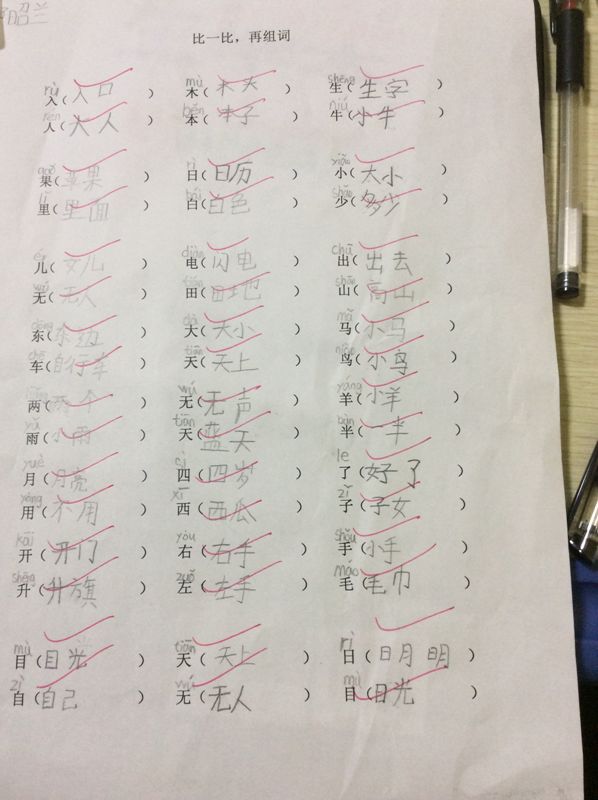 昭兰
比一比，再组词
rù mù shēng
入（入口） 木（木头） 生（生字）
rén běn niú
人（大人） 本（本子） 牛（小牛）
guǒ rì xiǎo
果（苹果） 日（日历） 小（大小）
lǐ bái shǎo
里（里面） 白（白色） 少（多少）
ér diàn chū
儿（女儿） 电（闪电） 出（出去）
wú tián shān
无（无人） 田（田地） 山（高山）
dōng dà mǎ
东（东边） 大（大小） 马（小马）
chē tiān niǎo
车（自行车） 天（天上） 鸟（小鸟）
liǎng wú yáng
两（两个） 无（无声） 羊（小羊）
yǔ tiān bàn
雨（小雨） 天（蓝天） 半（一半）
yuè sì le
月（月亮） 四（四岁） 了（好了）
yòng xī zǐ
用（不用） 西（西瓜） 子（子女）
kāi yòu shǒu
开（开门） 右（右手） 手（小手）
shēng zuǒ máo
升（升旗） 左（左手） 毛（毛巾）
mù tiān rì
目（目光） 天（天上） 日（日月明）
zì wú mù
自（自己） 无（无人） 目（目光）